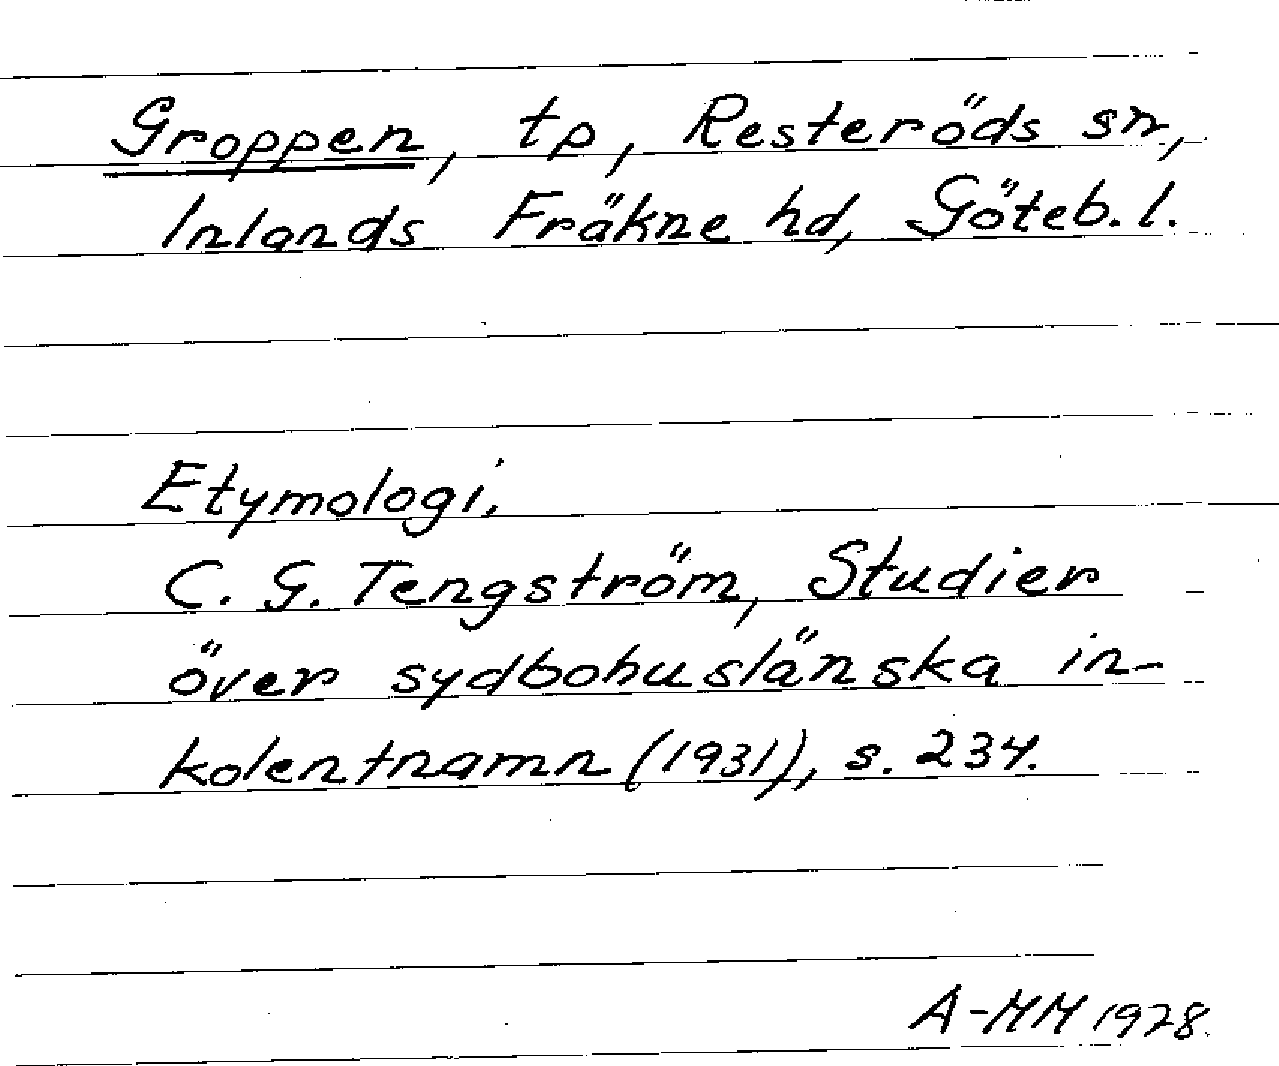 Groppen, tp, Resteröds sn,
Inlands Fräkne hd, Göteb. l.
Etymologi.
C. G. Tengström, Studier
över sydbohuslänska in-
kolentnamn (1931), s. 234.
A-MM 1978.